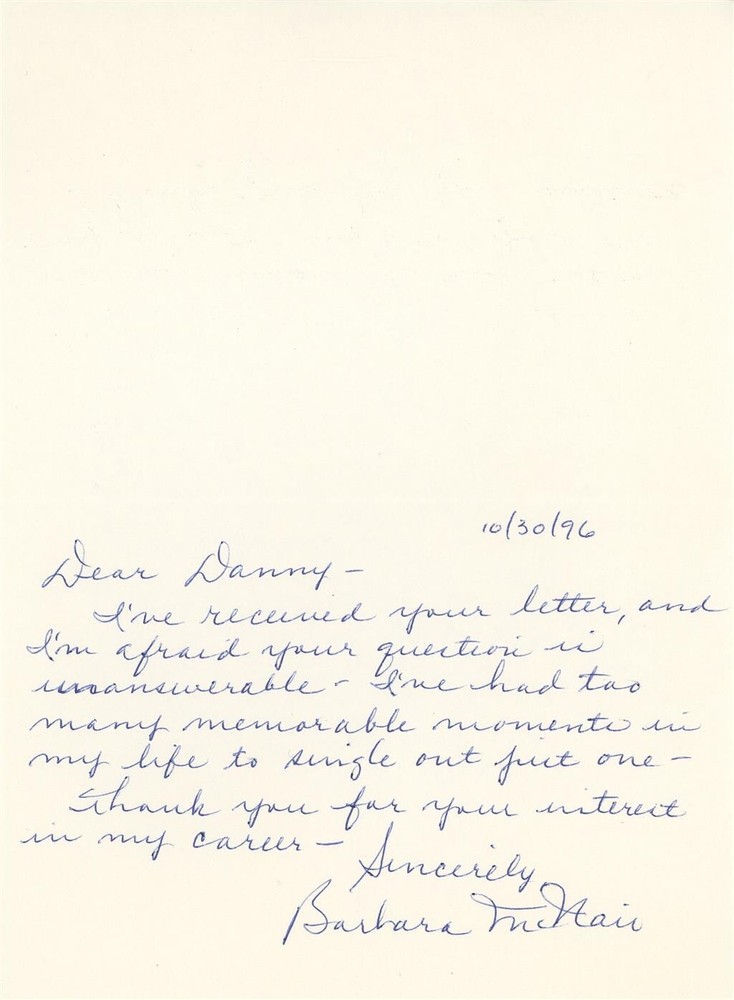 10/30/96
Dear Danny –
I've received your letter, and
I'm afraid your question is
unanswerable – I've had too
many memorable moments in
my life to single out just one –
Thank you for your interest
in my career –
Sincerely,
Barbara McNair